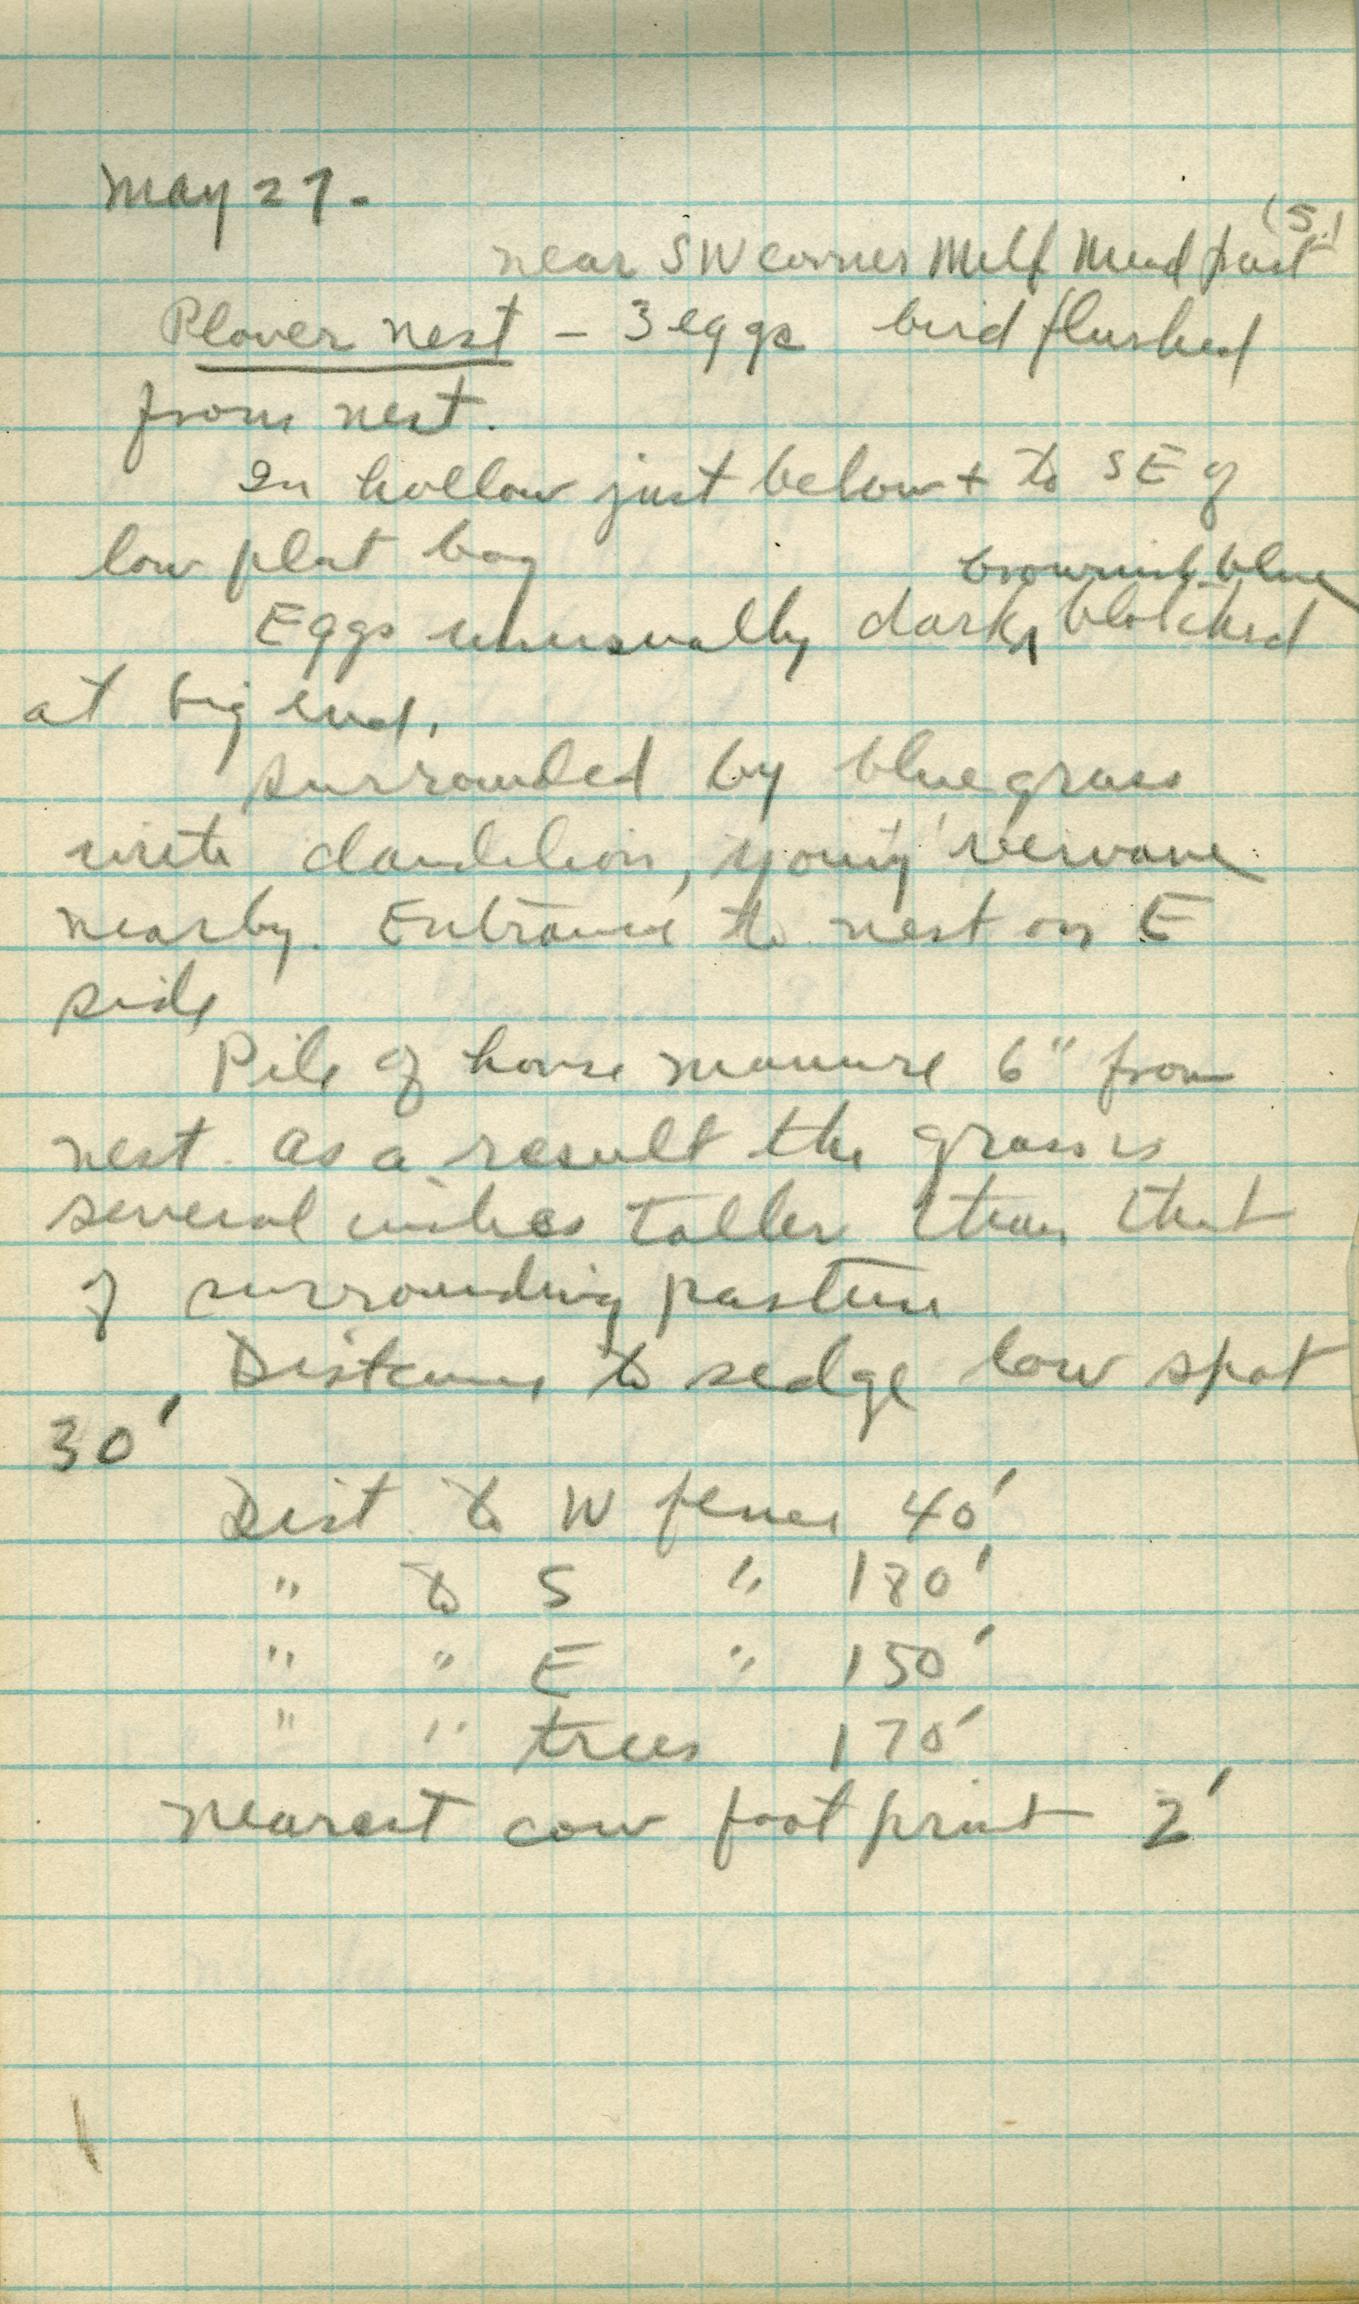 May 27.
(S.)
near SW corner Milf Mead past
Plover nest – 3 eggs bird flushed
from nest.
In hollow just below + to SE of
low flat bog
brownish-blue
Eggs unusually dark, blotched
at big end.
surrounded by bluegrass
with dandelion, young vervane
nearby. Entrance to nest on E
side
Pile of horse manure 6" from
nest. As a result the grass is
several inches taller than that
of surrounding pasture
Distance to sedge low spot
30'
Dist. to W fence 40'
" to S " 180'
" " E " 150'
" " trees 170'
nearest cow foot print 2'